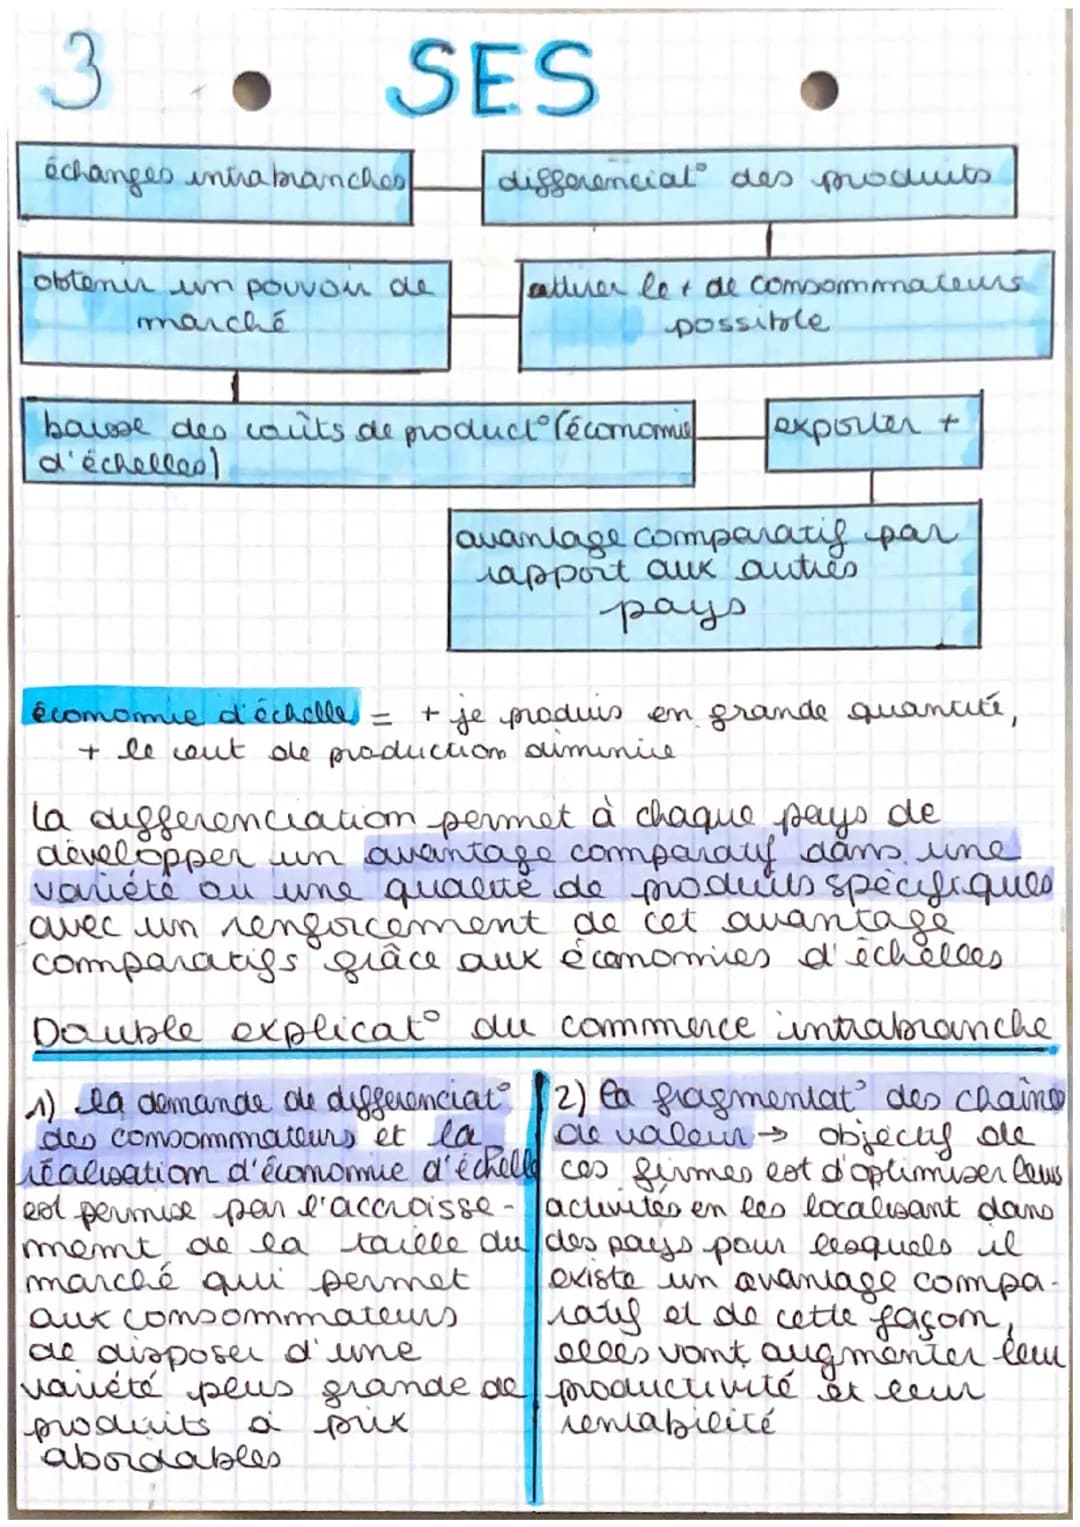 3 SES
échanges intrabranches
différenciat° des produits
obtenir un pouvoir de
marché
attirer le + de consommateurs
possible
baisse des coûts de product° (économie
d'échelles)
exporter +
avantage comparatif par
rapport aux autres
pays
économie d'échelle = + je produis en grande quantité,
+ le cout de production diminue
La differenciation permet à chaque pays de
développer un avantage comparatif dans une
variété ou une qualité de produits spécifiques
avec un renforcement de cet avantage
comparatifs grâce aux économies d'échelles
Double explicat° du commerce intrabranche
1) la demande de differenciat°
des consommateurs et la
réalisation d'économie d'échelle
est permise par l'accroisse-
ment de la taille du
marché qui permet
aux consommateurs
de disposer d'une
variété plus grande de
produits à prix
abordables
2) la fragmentat° des chaîne
de valeur → objectif de
ces firmes est d'optimiser leurs
activités en les localisant dans
des pays pour lesquels il
existe un avantage compa-
ratif et de cette façon,
elles vont augmenter leur
productivité et leur
rentabilité